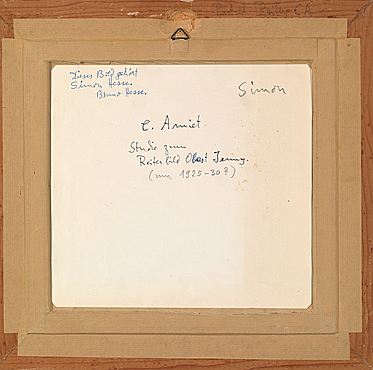 Dieses Bild gehört
Simon Hesse.
Bruno Hesse.
Simon
C. Amiet.
Studie zum
Reiterbild Oberst Jenny.
(um 1925-30?)